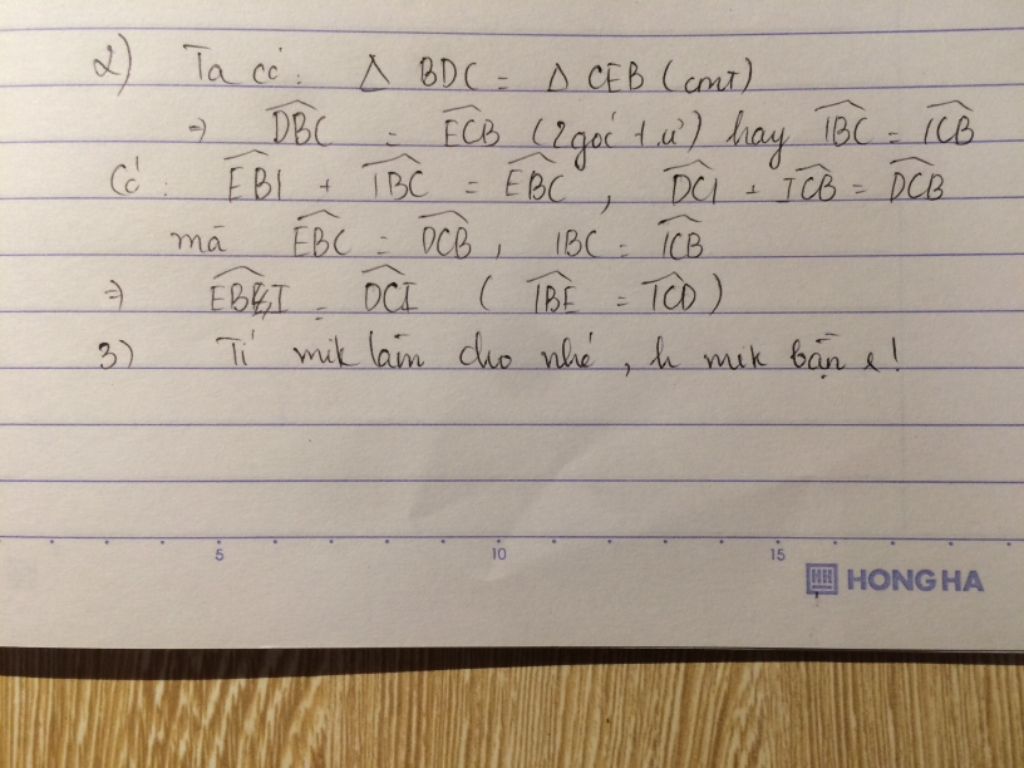 2) Ta có: Δ BDC = Δ CEB (cmt)
=> \widehat{DBC} = \widehat{ECB} (2 góc t.ư) hay \widehat{IBC} = \widehat{ICB}
Có: \widehat{EBI} + \widehat{IBC} = \widehat{EBC}, \widehat{DCI} + \widehat{ICB} = \widehat{DCB}
mà \widehat{EBC} = \widehat{DCB}, IBC = \widehat{ICB}
=> \widehat{EBI} = \widehat{DCI} ( \widehat{IBE} = \widehat{ICD} )
3) Tí mik làm cho nhé, h mik bận r!
5 10 15
HONG HA